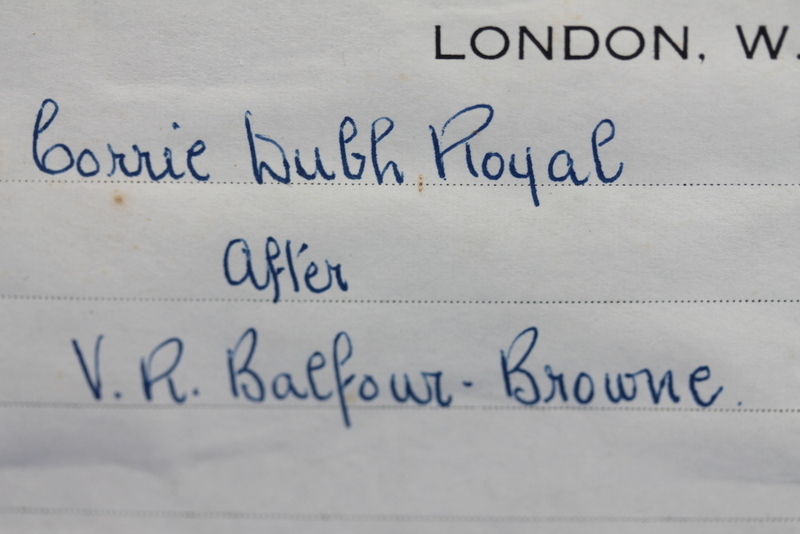 LONDON, W.
Corrie Dubh Royal
After
V. R. Balfour-Browne.